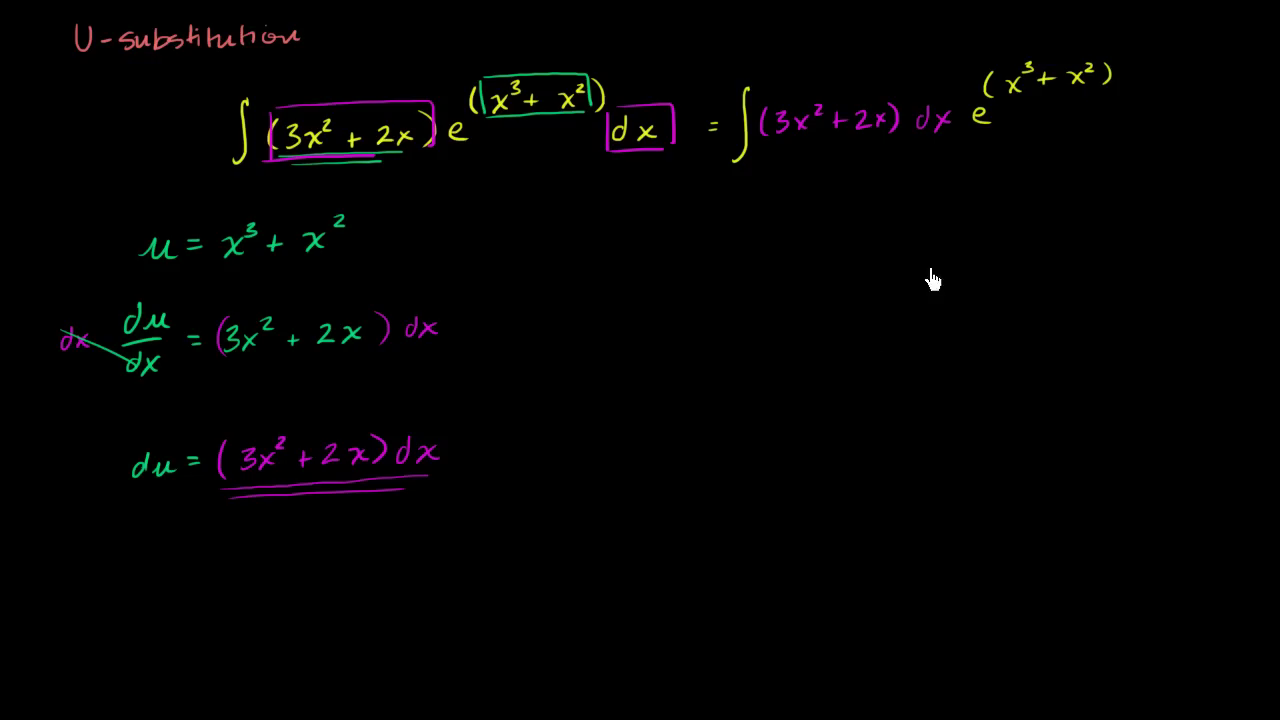 U-substitution
∫ (3x² + 2x) e^(x³ + x²) dx = ∫ (3x² + 2x) dx e^(x³ + x²)
u = x³ + x²
dx du/dx = (3x² + 2x) dx
du = (3x² + 2x) dx